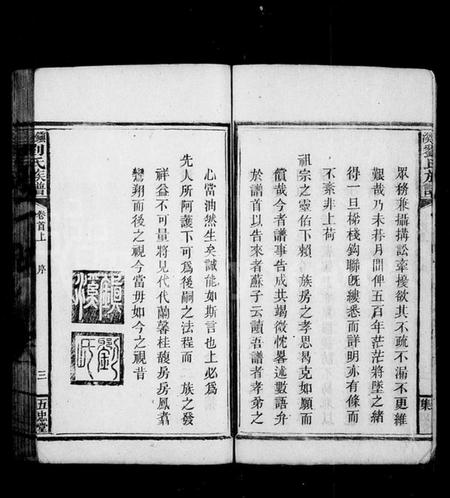 眾務兼攝搆訟牽擾欲其不疏不漏不更維
艱哉乃未朞月間俾五百年茫茫將墜之緒
得一旦梯棧鈎聯旣縷悉而詳明亦有條而
不紊非上荷
祖宗之靈佑下賴 族房之孝思曷克如願而
償哉今者譜事告成共竭微忱畧述數語弁
於譜首以告來者蘇子云讀吾譜者孝弟之
心當油然生矣誠能如斯言也上必為
先人所阿護下可為後嗣之法程而 族之發
祥益不可量將見代代蘭馨桂馥房房鳳翥
鸞翔而後之視今當毋如今之視昔
溪
劉氏
劉氏族譜
卷首上
序
三
五忠堂